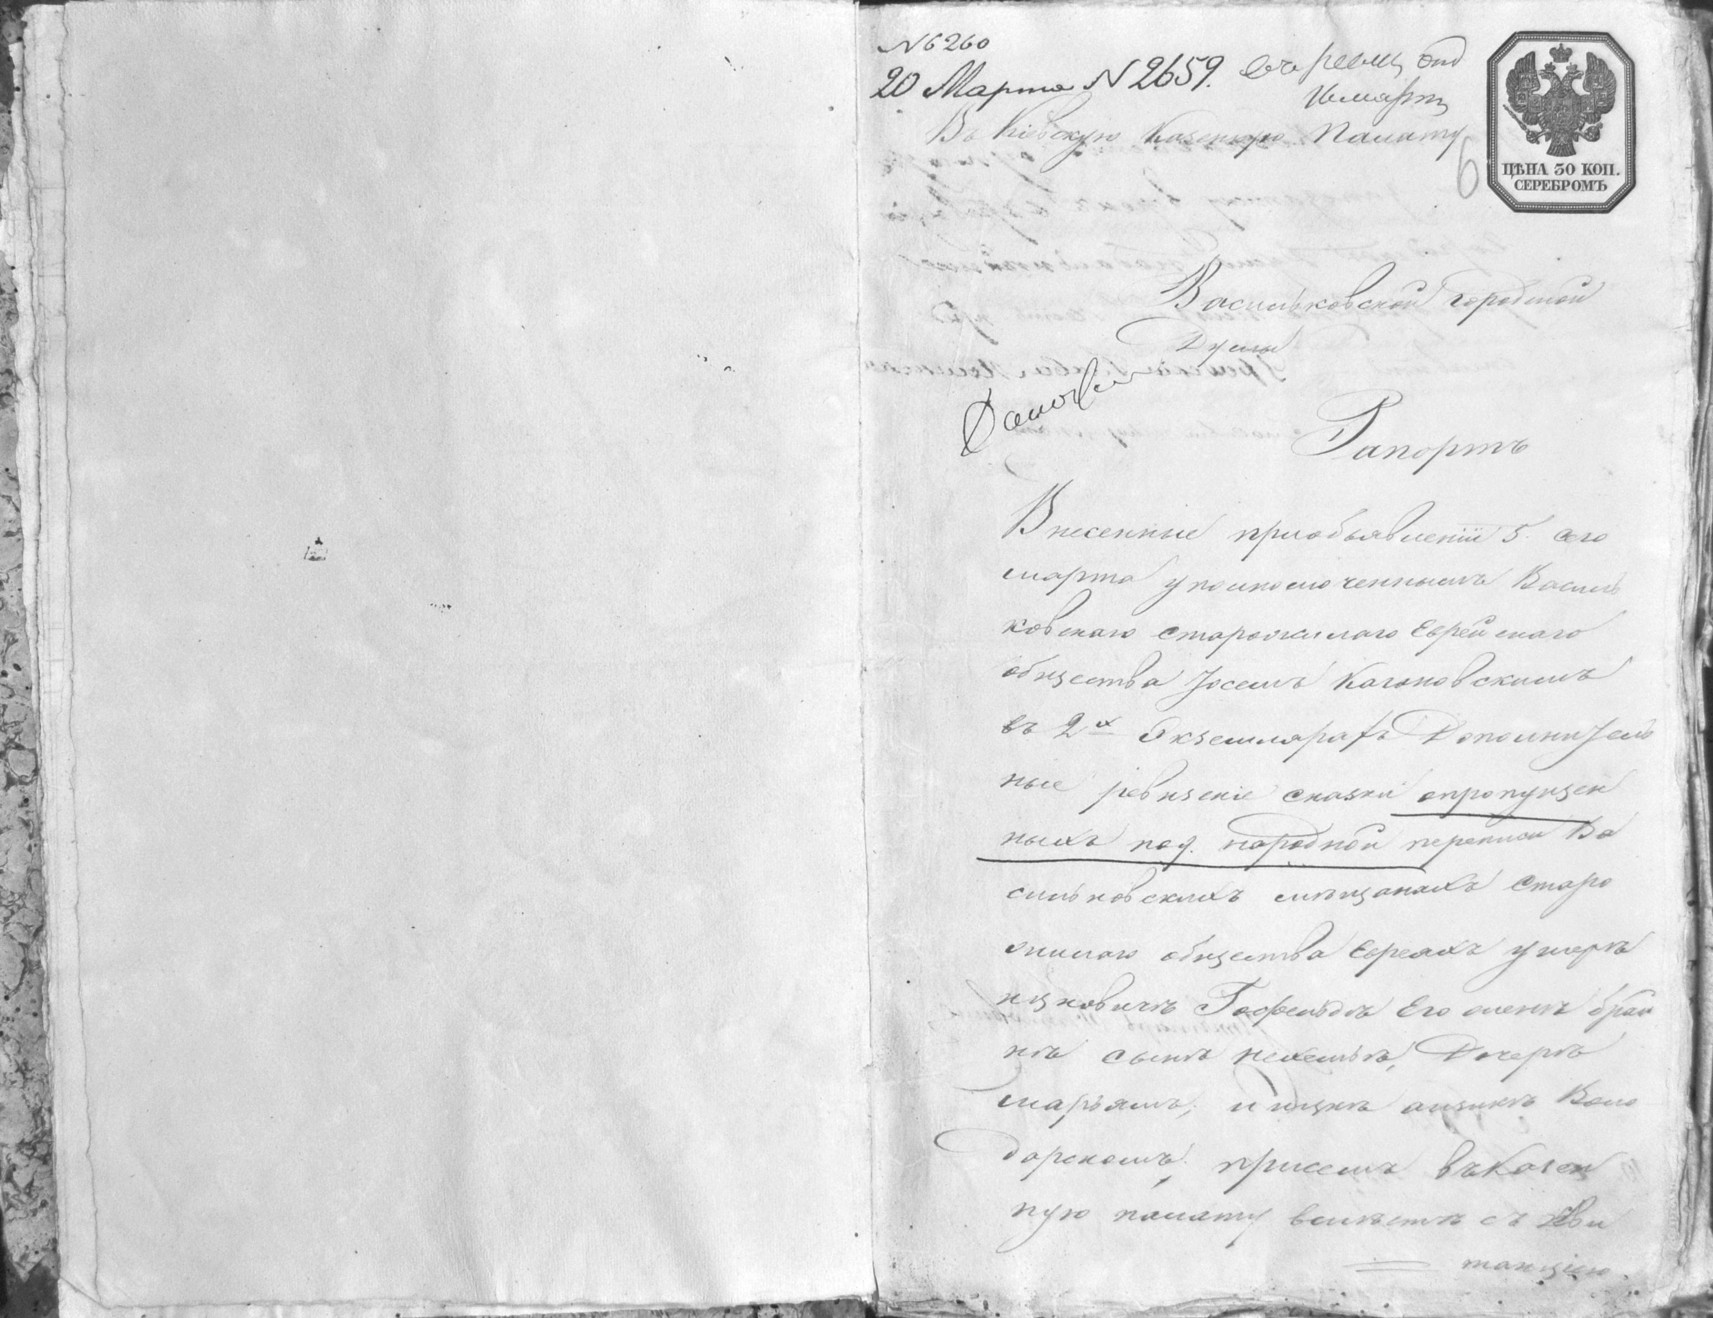 N 6260
20 Марта N 2659.
Въ Кіевскую Казенную Палату
6
ЦѢНА 30 КОП.
СЕРЕБРОМЪ
Васильковской городской
Думы
Рапортъ
Внесенные приобъявленіи 5 сего
марта уполномоченнымъ Василь
ковскаго старожилаго Еврейскаго
общества Іосемъ Кагановскимъ
въ 2х Екземплярахъ Дополнитель
ные ревизскіе сказки опропущен
ныхъ по 9. народной переписи Ва
сильковскихъ мещанахъ старо
жилаго общества Евреяхъ
ицковичѣ Гофельдѣ Его женѣ
сынѣ Дочерѣ
марьямъ, и ицкѣ Воло
дарскомъ, присемъ въ Казен
ную палату вместѣ съ кви
танціею.